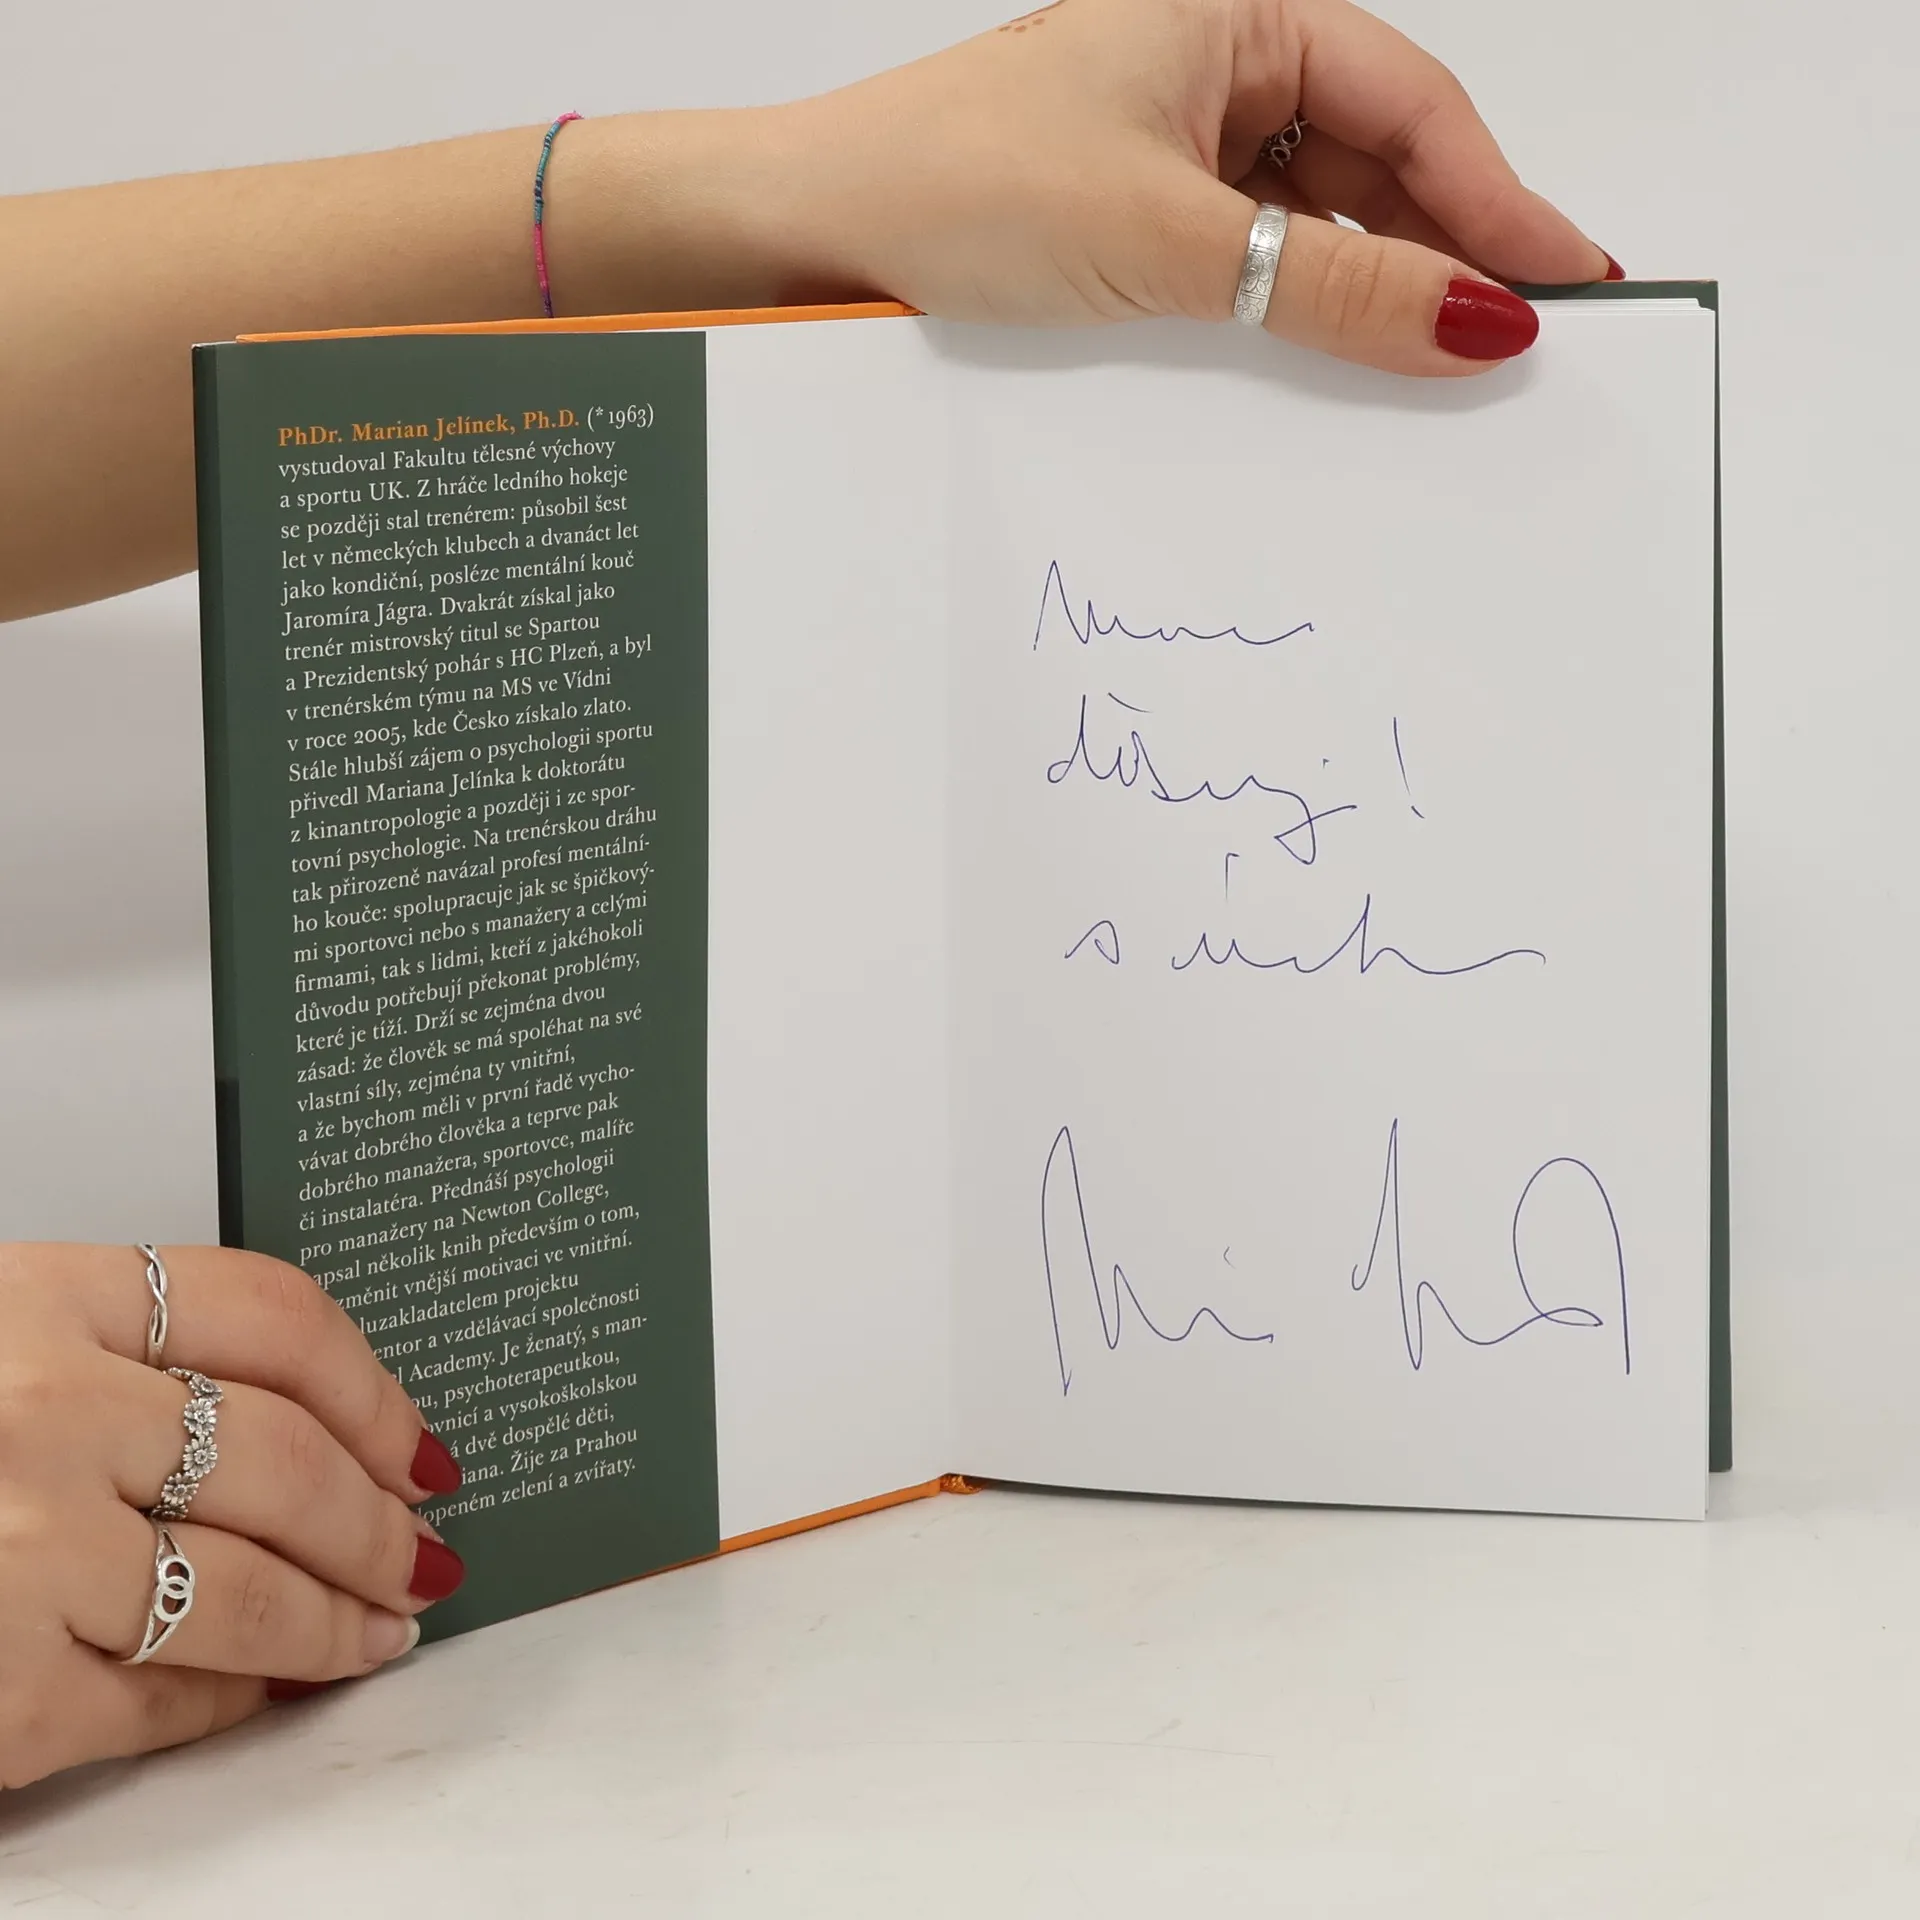 PhDr. Marian Jelínek, Ph.D. (* 1963)
vystudoval Fakultu tělesné výchovy
a sportu UK. Z hráče ledního hokeje
se později stal trenérem: působil šest
let v německých klubech a dvanáct let
jako kondiční, posléze mentální kouč
Jaromíra Jágra. Dvakrát získal jako
trenér mistrovský titul se Spartou
a Prezidentský pohár s HC Plzeň, a byl
v trenérském týmu na MS ve Vídni
v roce 2005, kde Česko získalo zlato.
Stále hlubší zájem o psychologii sportu
přivedl Mariana Jelínka k doktorátu
z kinantropologie a později i ze spor-
tovní psychologie. Na trenérskou dráhu
tak přirozeně navázal profesí mentální-
ho kouče: spolupracuje jak se špičkový-
mi sportovci nebo s manažery a celými
firmami, tak s lidmi, kteří z jakéhokoli
důvodu potřebují překonat problémy,
které je tíží. Drží se zejména dvou
zásad: že člověk se má spoléhat na své
vlastní síly, zejména ty vnitřní,
a že bychom měli v první řadě vycho-
vávat dobrého člověka a teprve pak
dobrého manažera, sportovce, malíře
či instalatéra. Přednáší psychologii
pro manažery na Newton College,
apsal několik knih především o tom,
změnit vnější motivaci ve vnitřní.
luzakladatelem projektu
entor a vzdělávací společnosti
l Academy. Je ženatý, s man-
ou, psychoterapeutkou,
ovnicí a vysokoškolskou
á dvě dospělé děti,
iana. Žije za Prahou
lopeném zelení a zvířaty.
děkuji!
s úctou